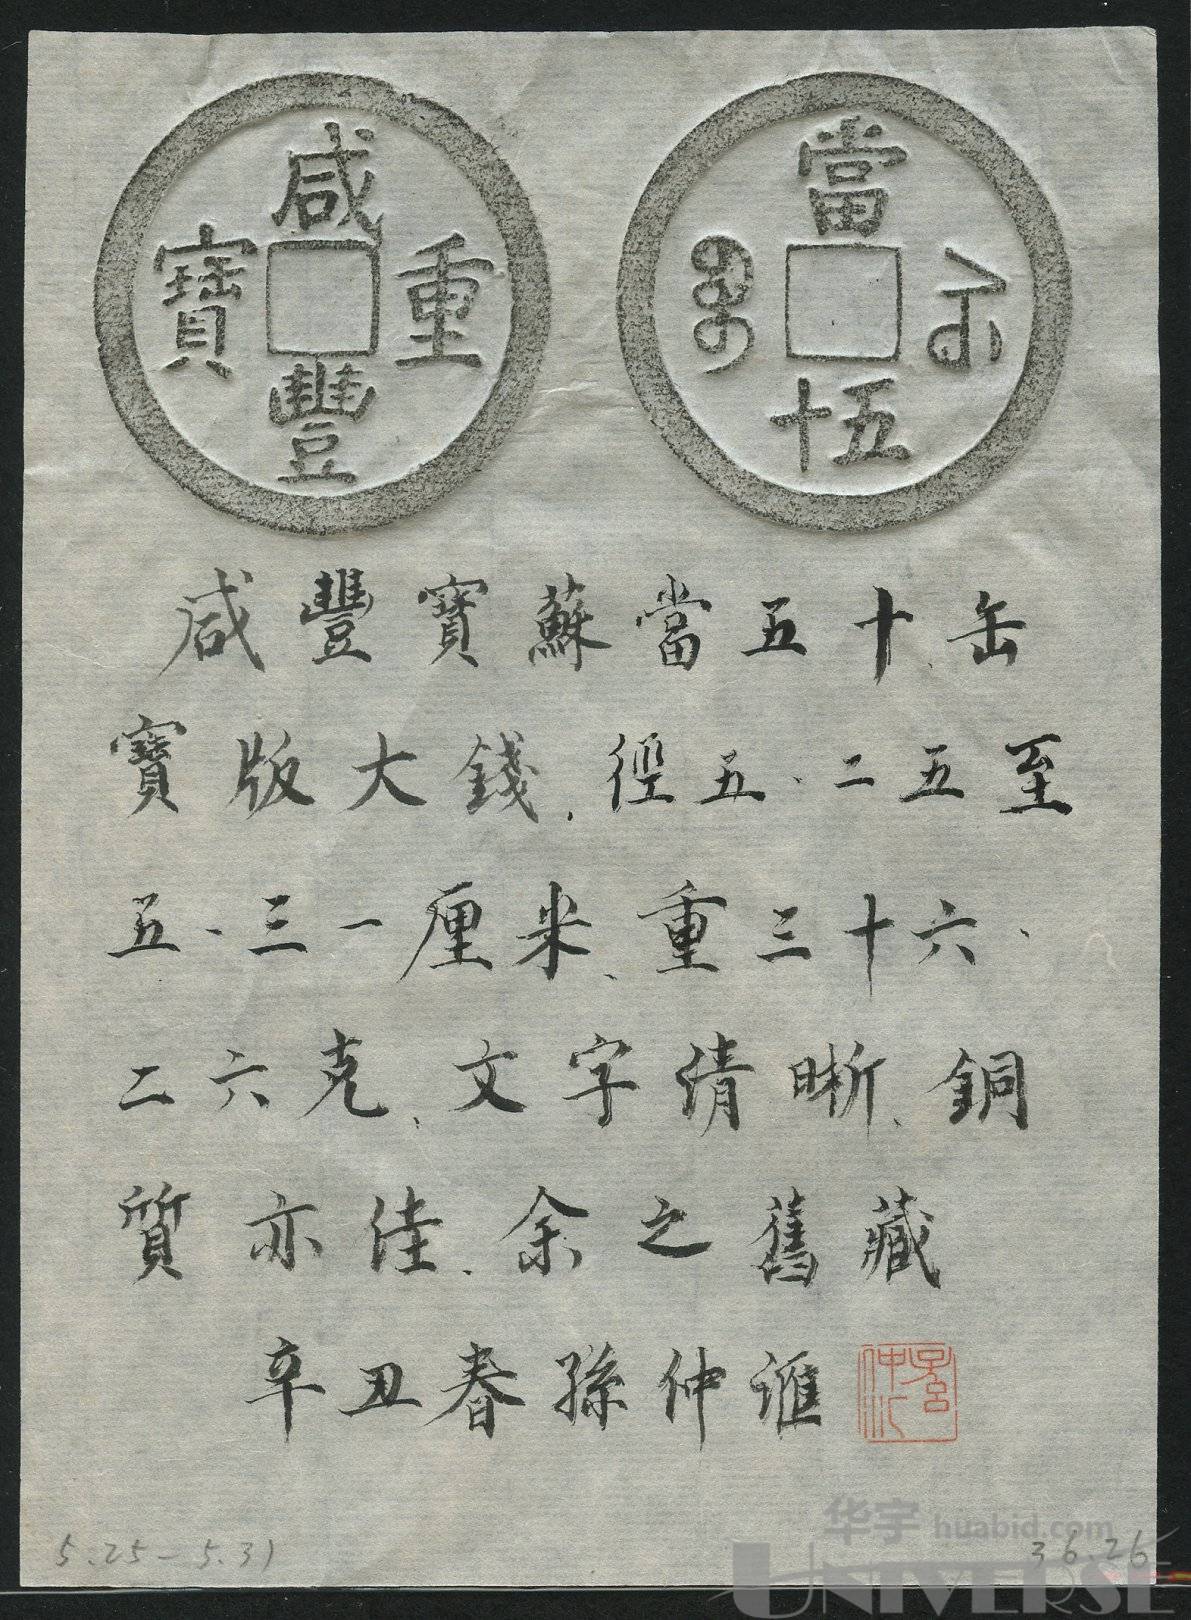 咸豐重寶
當五十
咸豐寶蘇當五十缶
寶版大錢、徑五．二五至
五．三一厘米、重三十六．
二六克、文字倩晰、銅
質亦佳、余之舊藏
辛丑春孫仲滙
5.25-5.31
36.26
华宇 huabid.com
UNIVERSE